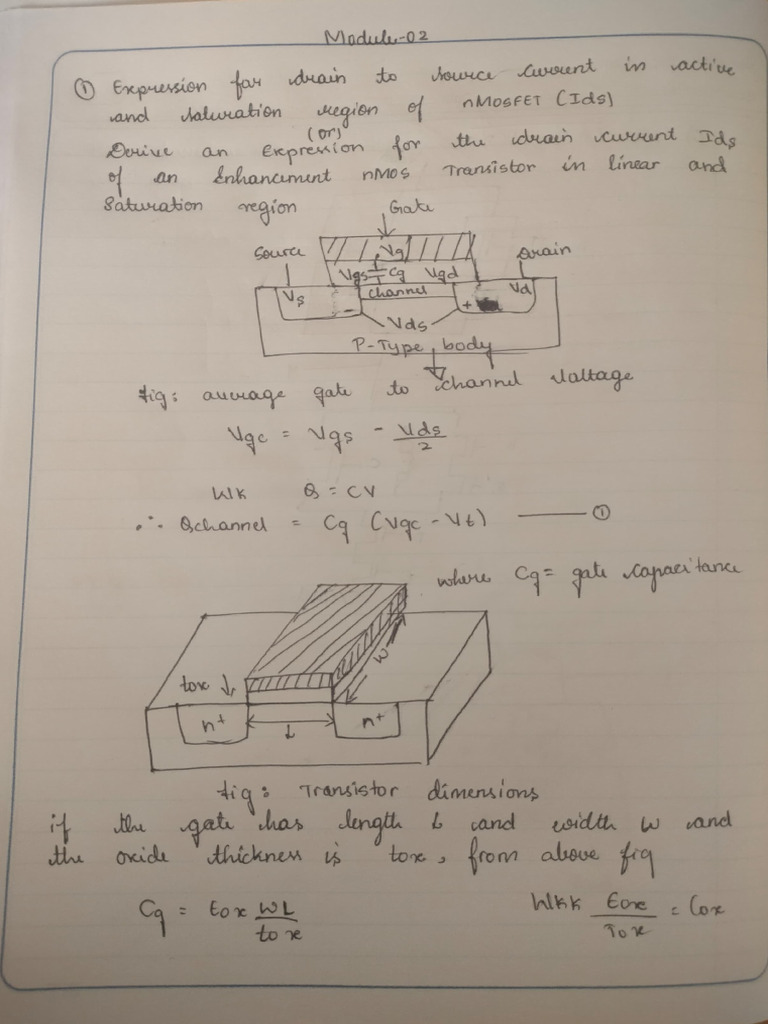 Module-02
① Expression for drain to source current in active
and saturation region of nMOSFET (Ids)
(or)
Derive an Expression for the drain current Ids
of an Enhancement nMOS Transistor in linear and
Saturation region
Gate
Source
Drain
Vg
Vgs Cg Vgd
Vs channel Vd
- Vds +
P-Type body
fig: average gate to channel Voltage
Vgc = Vgs - Vds/2
WK Q = CV
∴ Qchannel = Cg (Vgc - Vt) —— ①
where Cg = gate capacitance
tox ↓
W
n+ L n+
fig: Transistor dimensions
if the gate has length L and width W and
the oxide thickness is tox, from above fig
Cg = Eox WL/tox WKK Eox/Tox = Cox